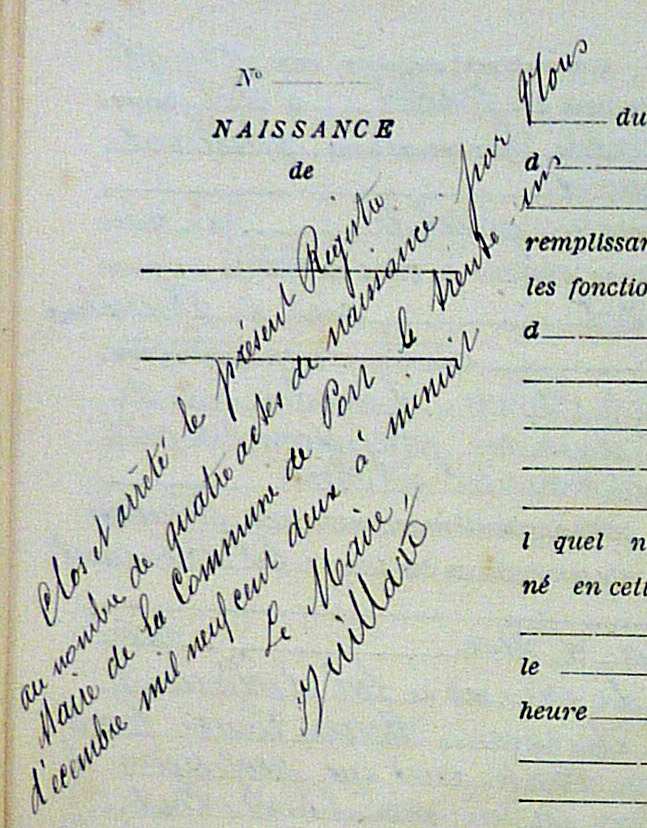 N°
NAISSANCE
de
Clos et arrêté le présent Registre
au nombre de quatre actes de naissance par Nous
Maire de la Commune de Port le trente-un
décembre mil neuf cent deux à minuit
Le Maire,
Juillard
du
d
remplissan
les fonctio
d
l quel n
né en cett
le
heure